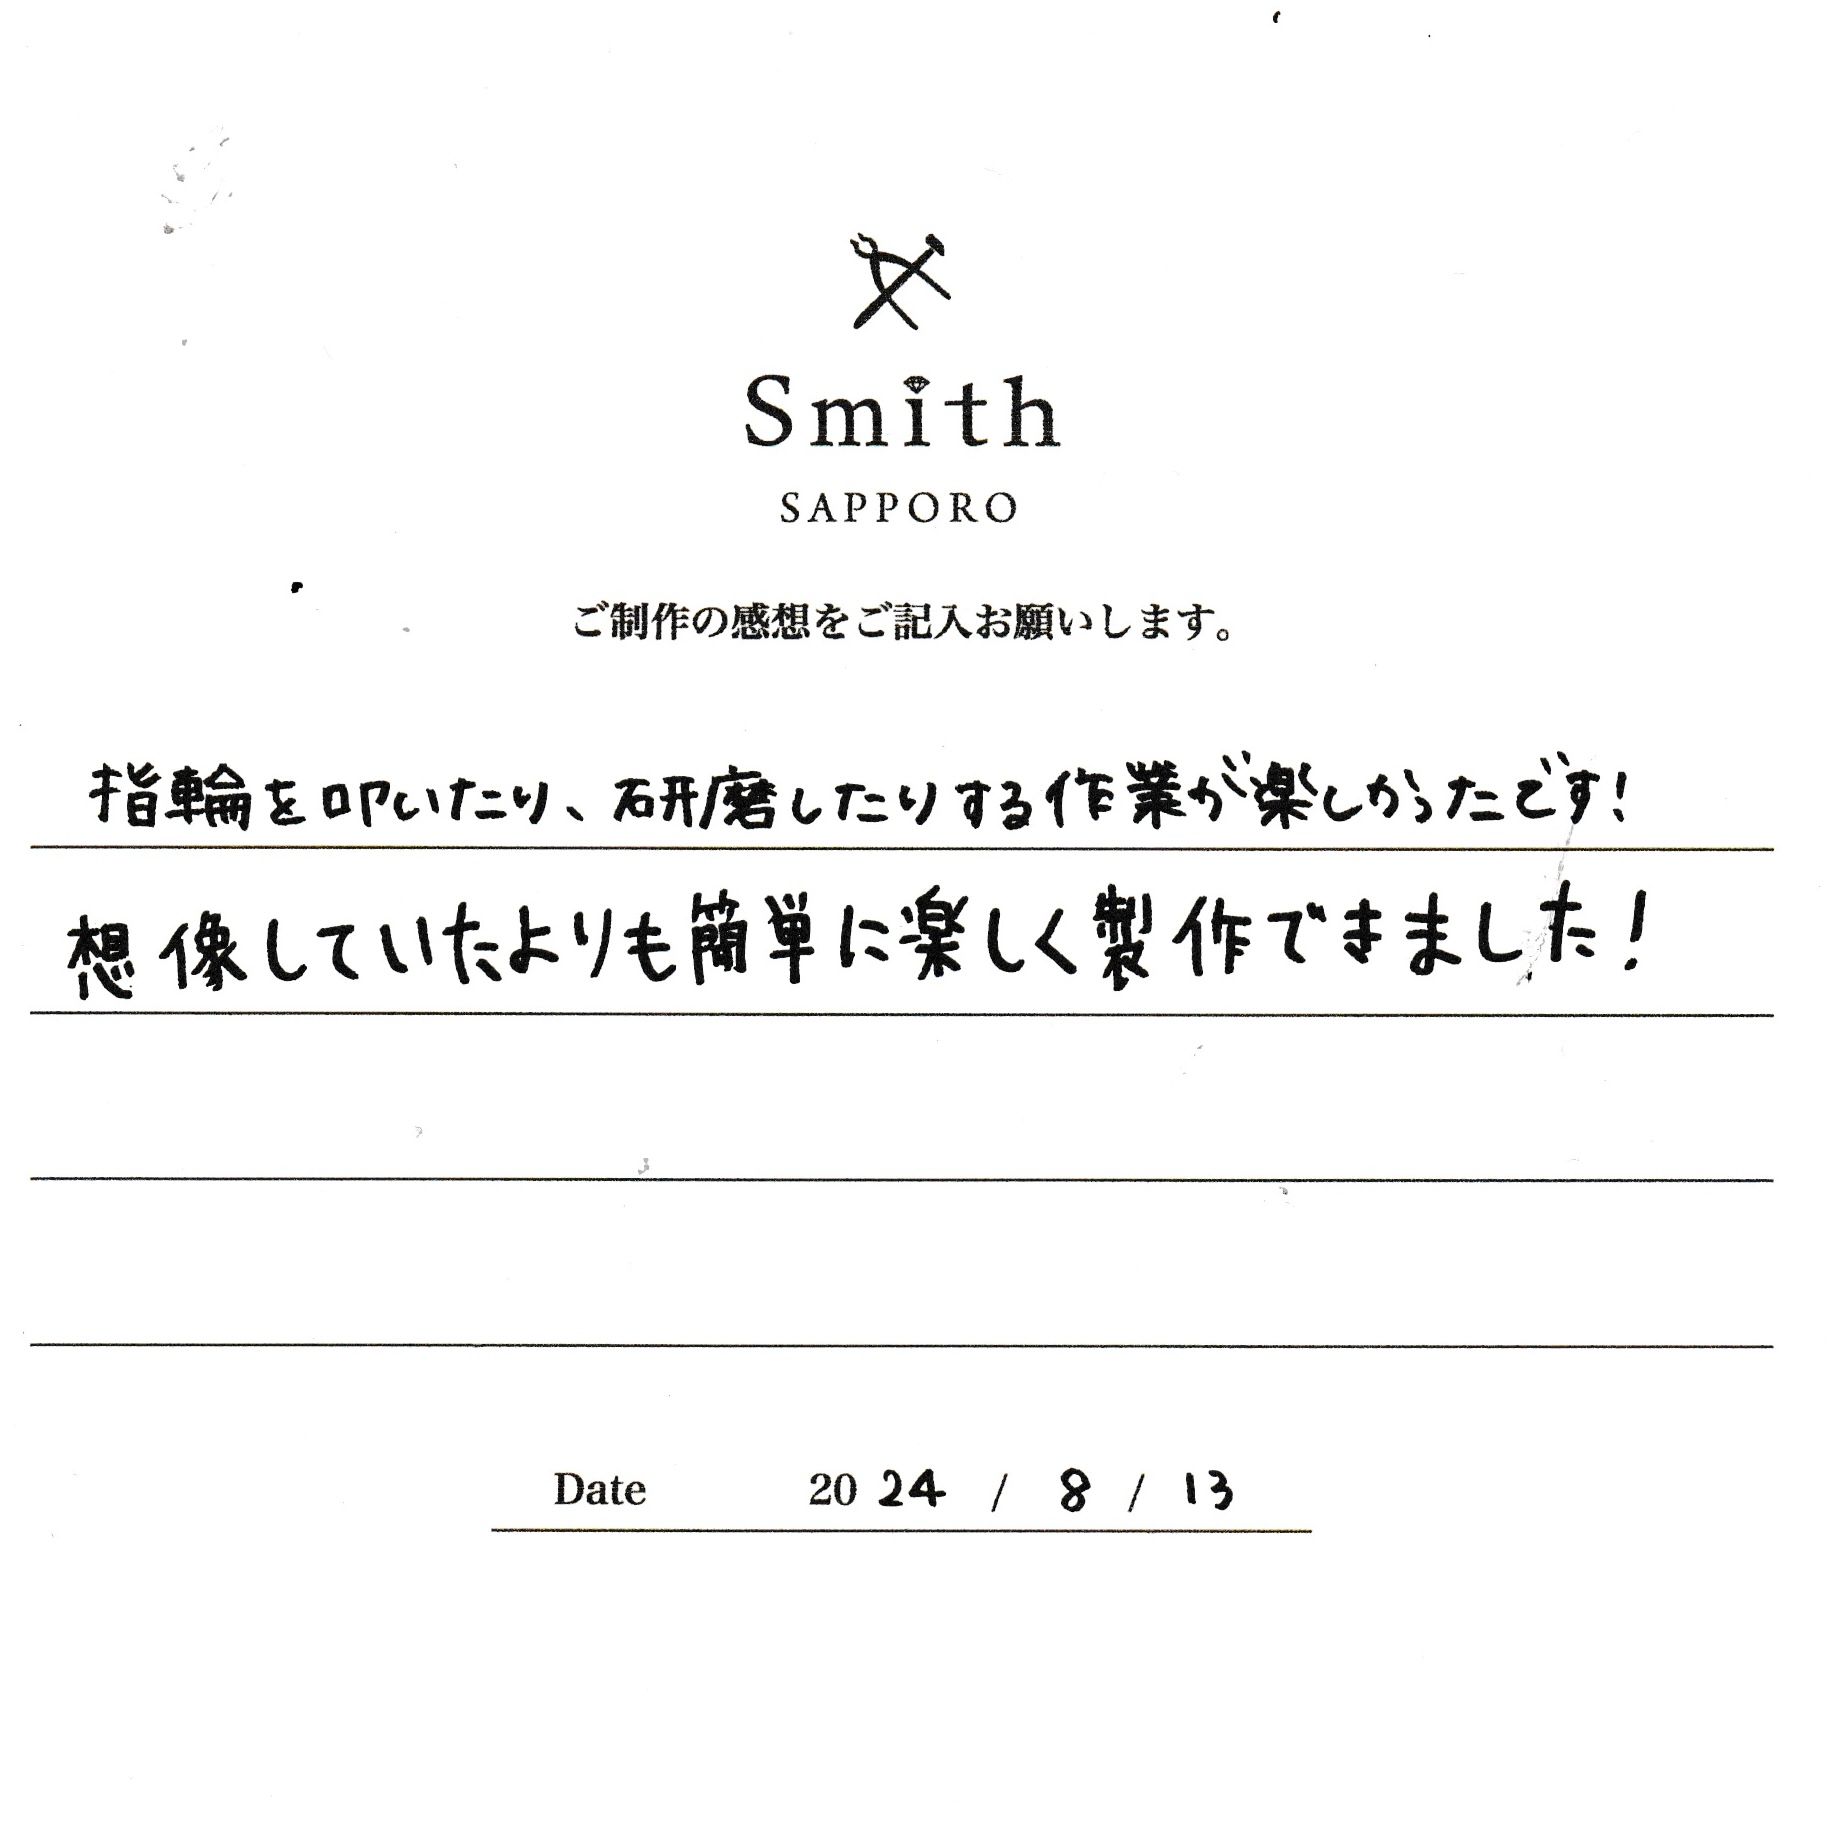 Smith
SAPPORO
ご制作の感想をご記入お願いします。
指輪を叩いたり、研磨したりする作業が楽しかったです!
想像していたよりも簡単に楽しく製作できました!
Date 2024 / 8 / 13